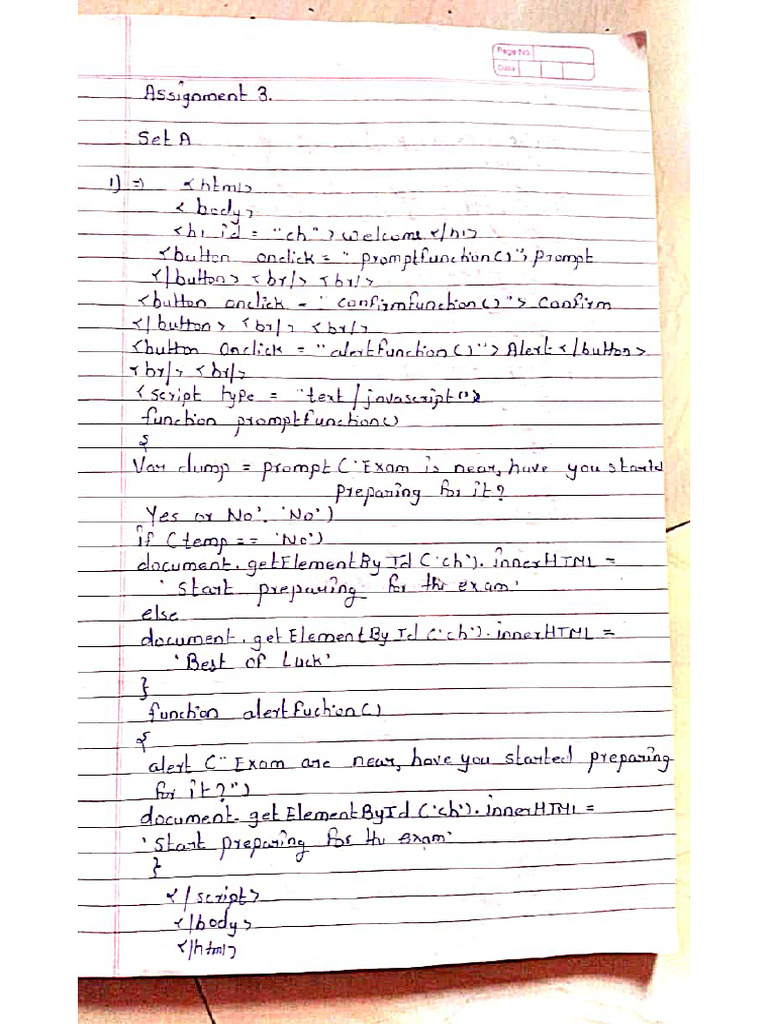 Page No.
Date
Assignment 3.
Set A
1) => <html>
<body>
<h1 id = "ch">welcome</h1>
<button onclick = "promptfunction()">Prompt
</button> <br/> <br/>
<button onclick = "confirmfunction()"> Confirm
</button> <br/> <br/>
<button onclick = "alertfunction()"> Alert </button>
<br/> <br/>
<script type = "text/javascript">
function promptfunction()
{
Var dump = prompt ('Exam is near, have you started
preparing for it?
Yes or No', 'No')
if (temp == 'No')
document.getElementById('ch').innerHTML =
'Start preparing for the exam'
else
document.getElementById('ch').innerHTML =
'Best of Luck'
}
function alertfuction()
{
alert ("Exam are near, have you started preparing
for it?")
document.getElementById('ch').innerHTML =
'Start preparing for the exam'
}
</script>
</body>
</html>